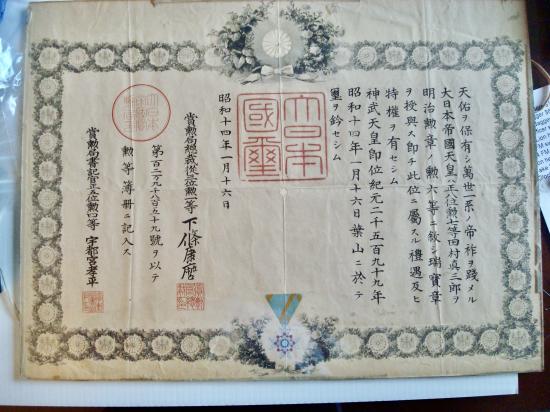 天佑ヲ保有シ萬世一系ノ帝祚ヲ踐メル
大日本帝國天皇ハ正八位勲七等田村真三郎ヲ
明治勲章ノ勲六等ニ敍シ瑞寶章
ヲ授與ス即チ此位ニ屬スル禮遇及ヒ
特權ヲ有セシム
神武天皇即位紀元二千五百九十九年
昭和十四年一月十六日葉山ニ於テ
璽ヲ鈐セシム
大日本
國璽
昭和十四年一月十六日
賞勲局總裁從位勲等下條康麿
第百二万九千八百五十九號ヲ以テ
勲等簿冊ニ記入ス
賞勲局書記官正五位勲四等宇都宮孝平